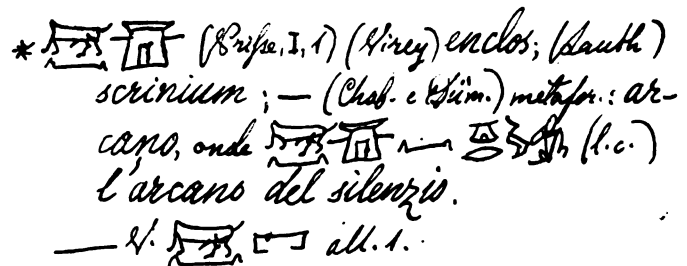 * (Prisse, I, 1) (Virey) enclos; (Lauth)
scrinium; — (Chab. e Düm.) metafor.: ar-
cano, onde (l.c.)
l'arcano del silenzio.
— V. all. 1.